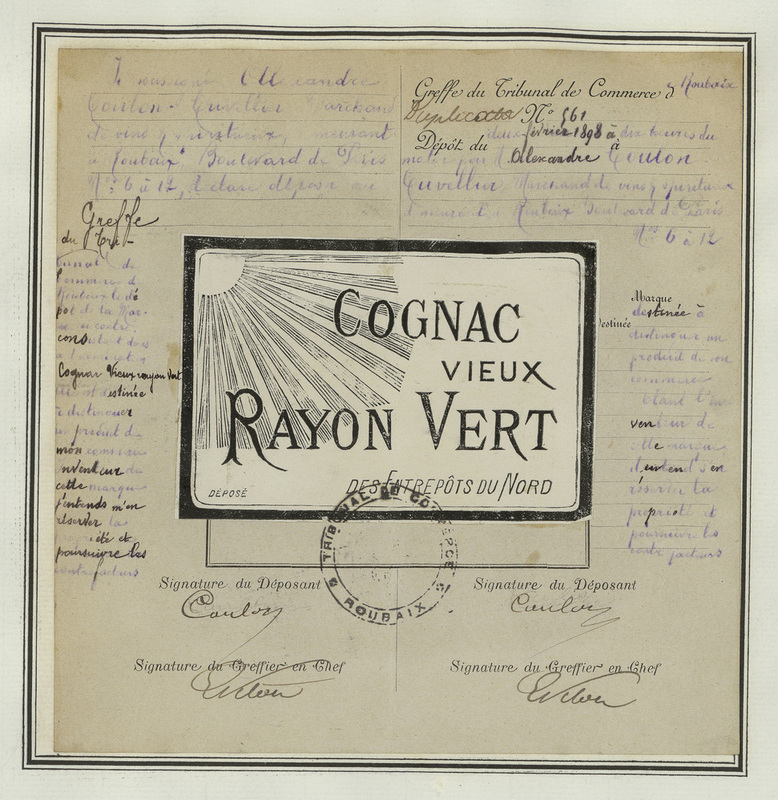 Je soussigné Alexandre
Coulon-Cuvellier Marchand
de vins & spiritueux, demeurant
à Roubaix Boulevard de Paris
Nos 6 à 12, déclare déposer au
Greffe
du Tri-
bunal de
Commerce de
Roubaix le dé
pot de la Mar-
que ci-contre
Cognac Vieux rayon Vert
est destinée
à distinguer
un produit de
mon commerce
Inventeur de
cette marque
j'entends m'en
réserver la
propriété et
poursuivre les
contrefacteurs
Greffe du Tribunal de Commerce d Roubaix
Duplicata No 561
Dépôt du deux février 1898 à dix heures du
matin par M Alexandre Coulon
Cuvellier Marchand de vins & spiritueux
demeurant à Roubaix Boulevard de Paris
Nos 6 à 12
Marque
destinée à
destinée
distinguer un
produit de son
commerce
Étant l'in-
venteur de
cette marque
il entend s'en
réserver la
propriété et
poursuivre les
contrefacteurs
COGNAC
VIEUX
RAYON VERT
DÉPOSÉ
DES ENTREPÔTS DU NORD
TRIBUNAL DE COMMERCE
ROUBAIX
Signature du Déposant
Coulon
Signature du Déposant
Coulon
Signature du Greffier en Chef
Signature du Greffier en Chef